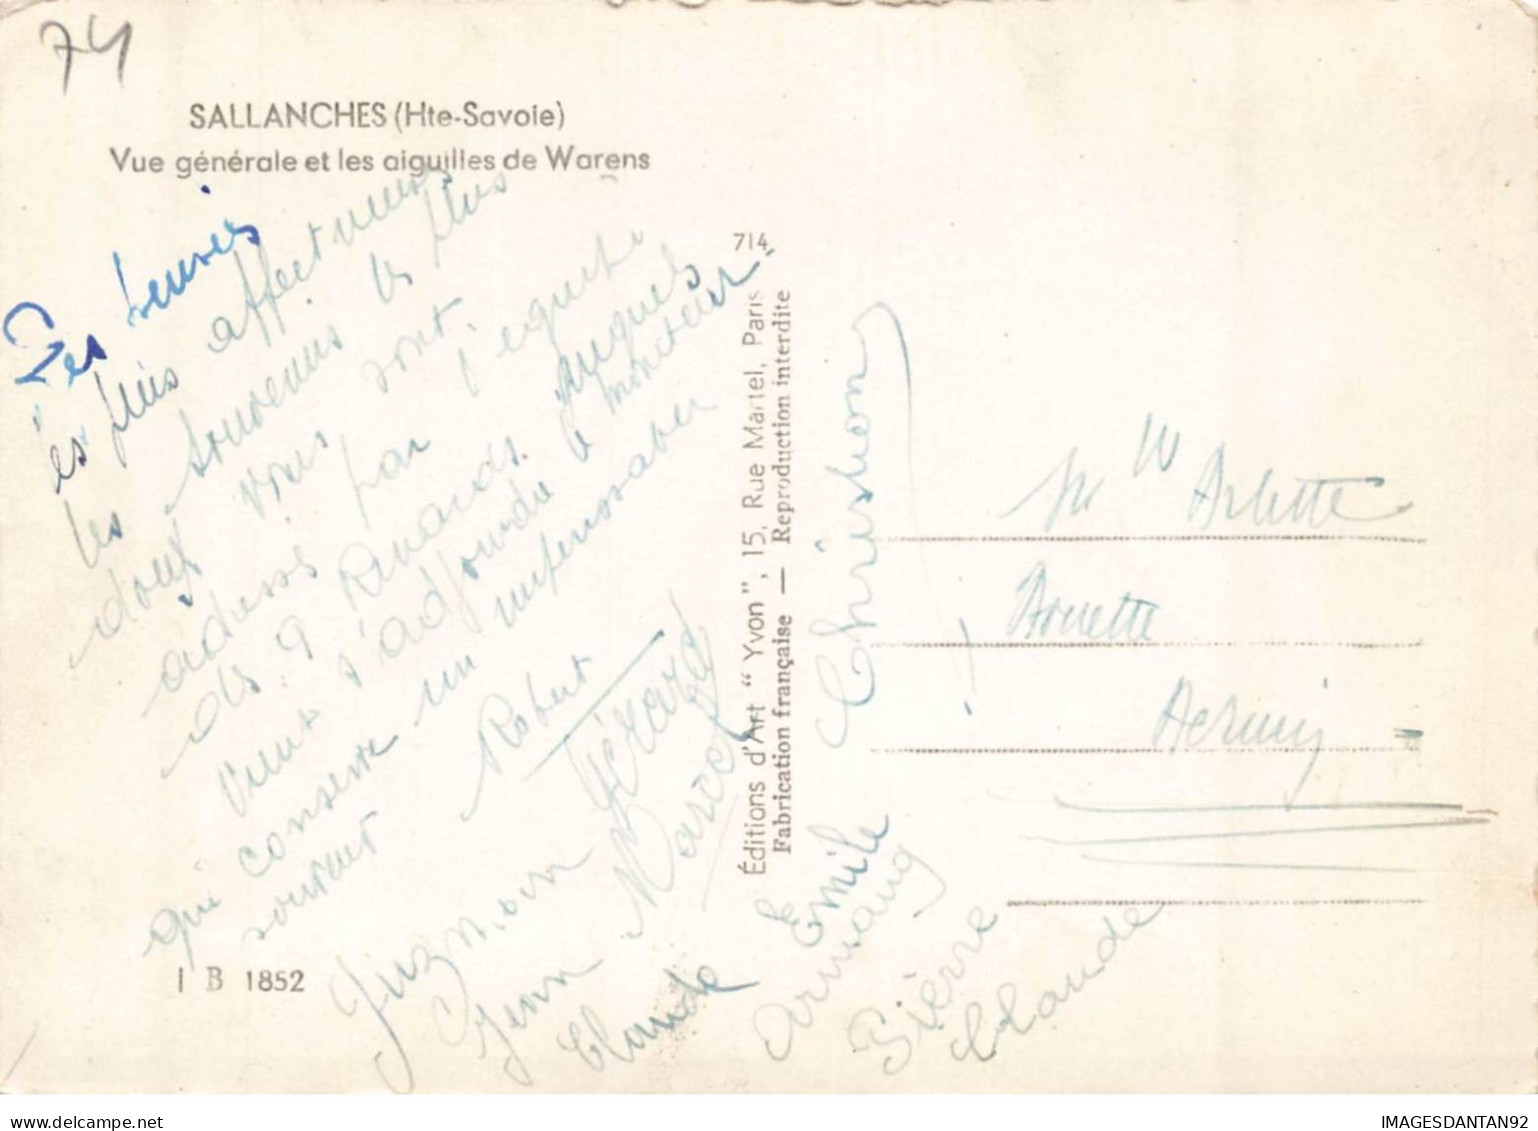 74
SALLANCHES (Hte-Savoie)
Vue générale et les aiguilles de Warens
les plus affectueux
les souvenirs les plus
doux vous sont
adressés par l'équipe
des 9 Renards. auquels
vient s'adjoindre le moniteur
qui conserve un
souvent
Robert
Gérard
Marcel
Guzman
Jean
Claude
714
Éditions d'Art “ Yvon ”, 15, Rue Martel, Paris
Fabrication française — Reproduction interdite
Christian
Emile
Armand
Pierre
Claude
Mlle Arlette
I B 1852
delcampe.net
IMAGESDANTAN92